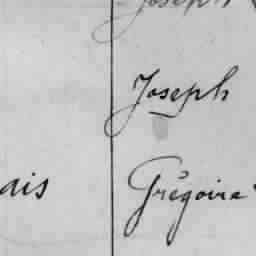 Joseph
Joseph
ais Grégoire